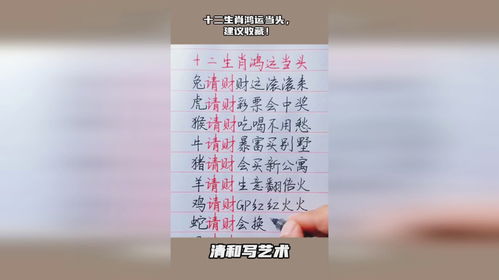 十二生肖鸿运当头，
建议收藏！
十二生肖鸿运当头
兔请财财运滚滚来
虎请财彩票会中奖
猴请财吃喝不用愁
牛请财暴富买别墅
猪请财会买新公寓
羊请财生意翻倍火
鸡请财GP红红火火
蛇请财会换
清和写艺术